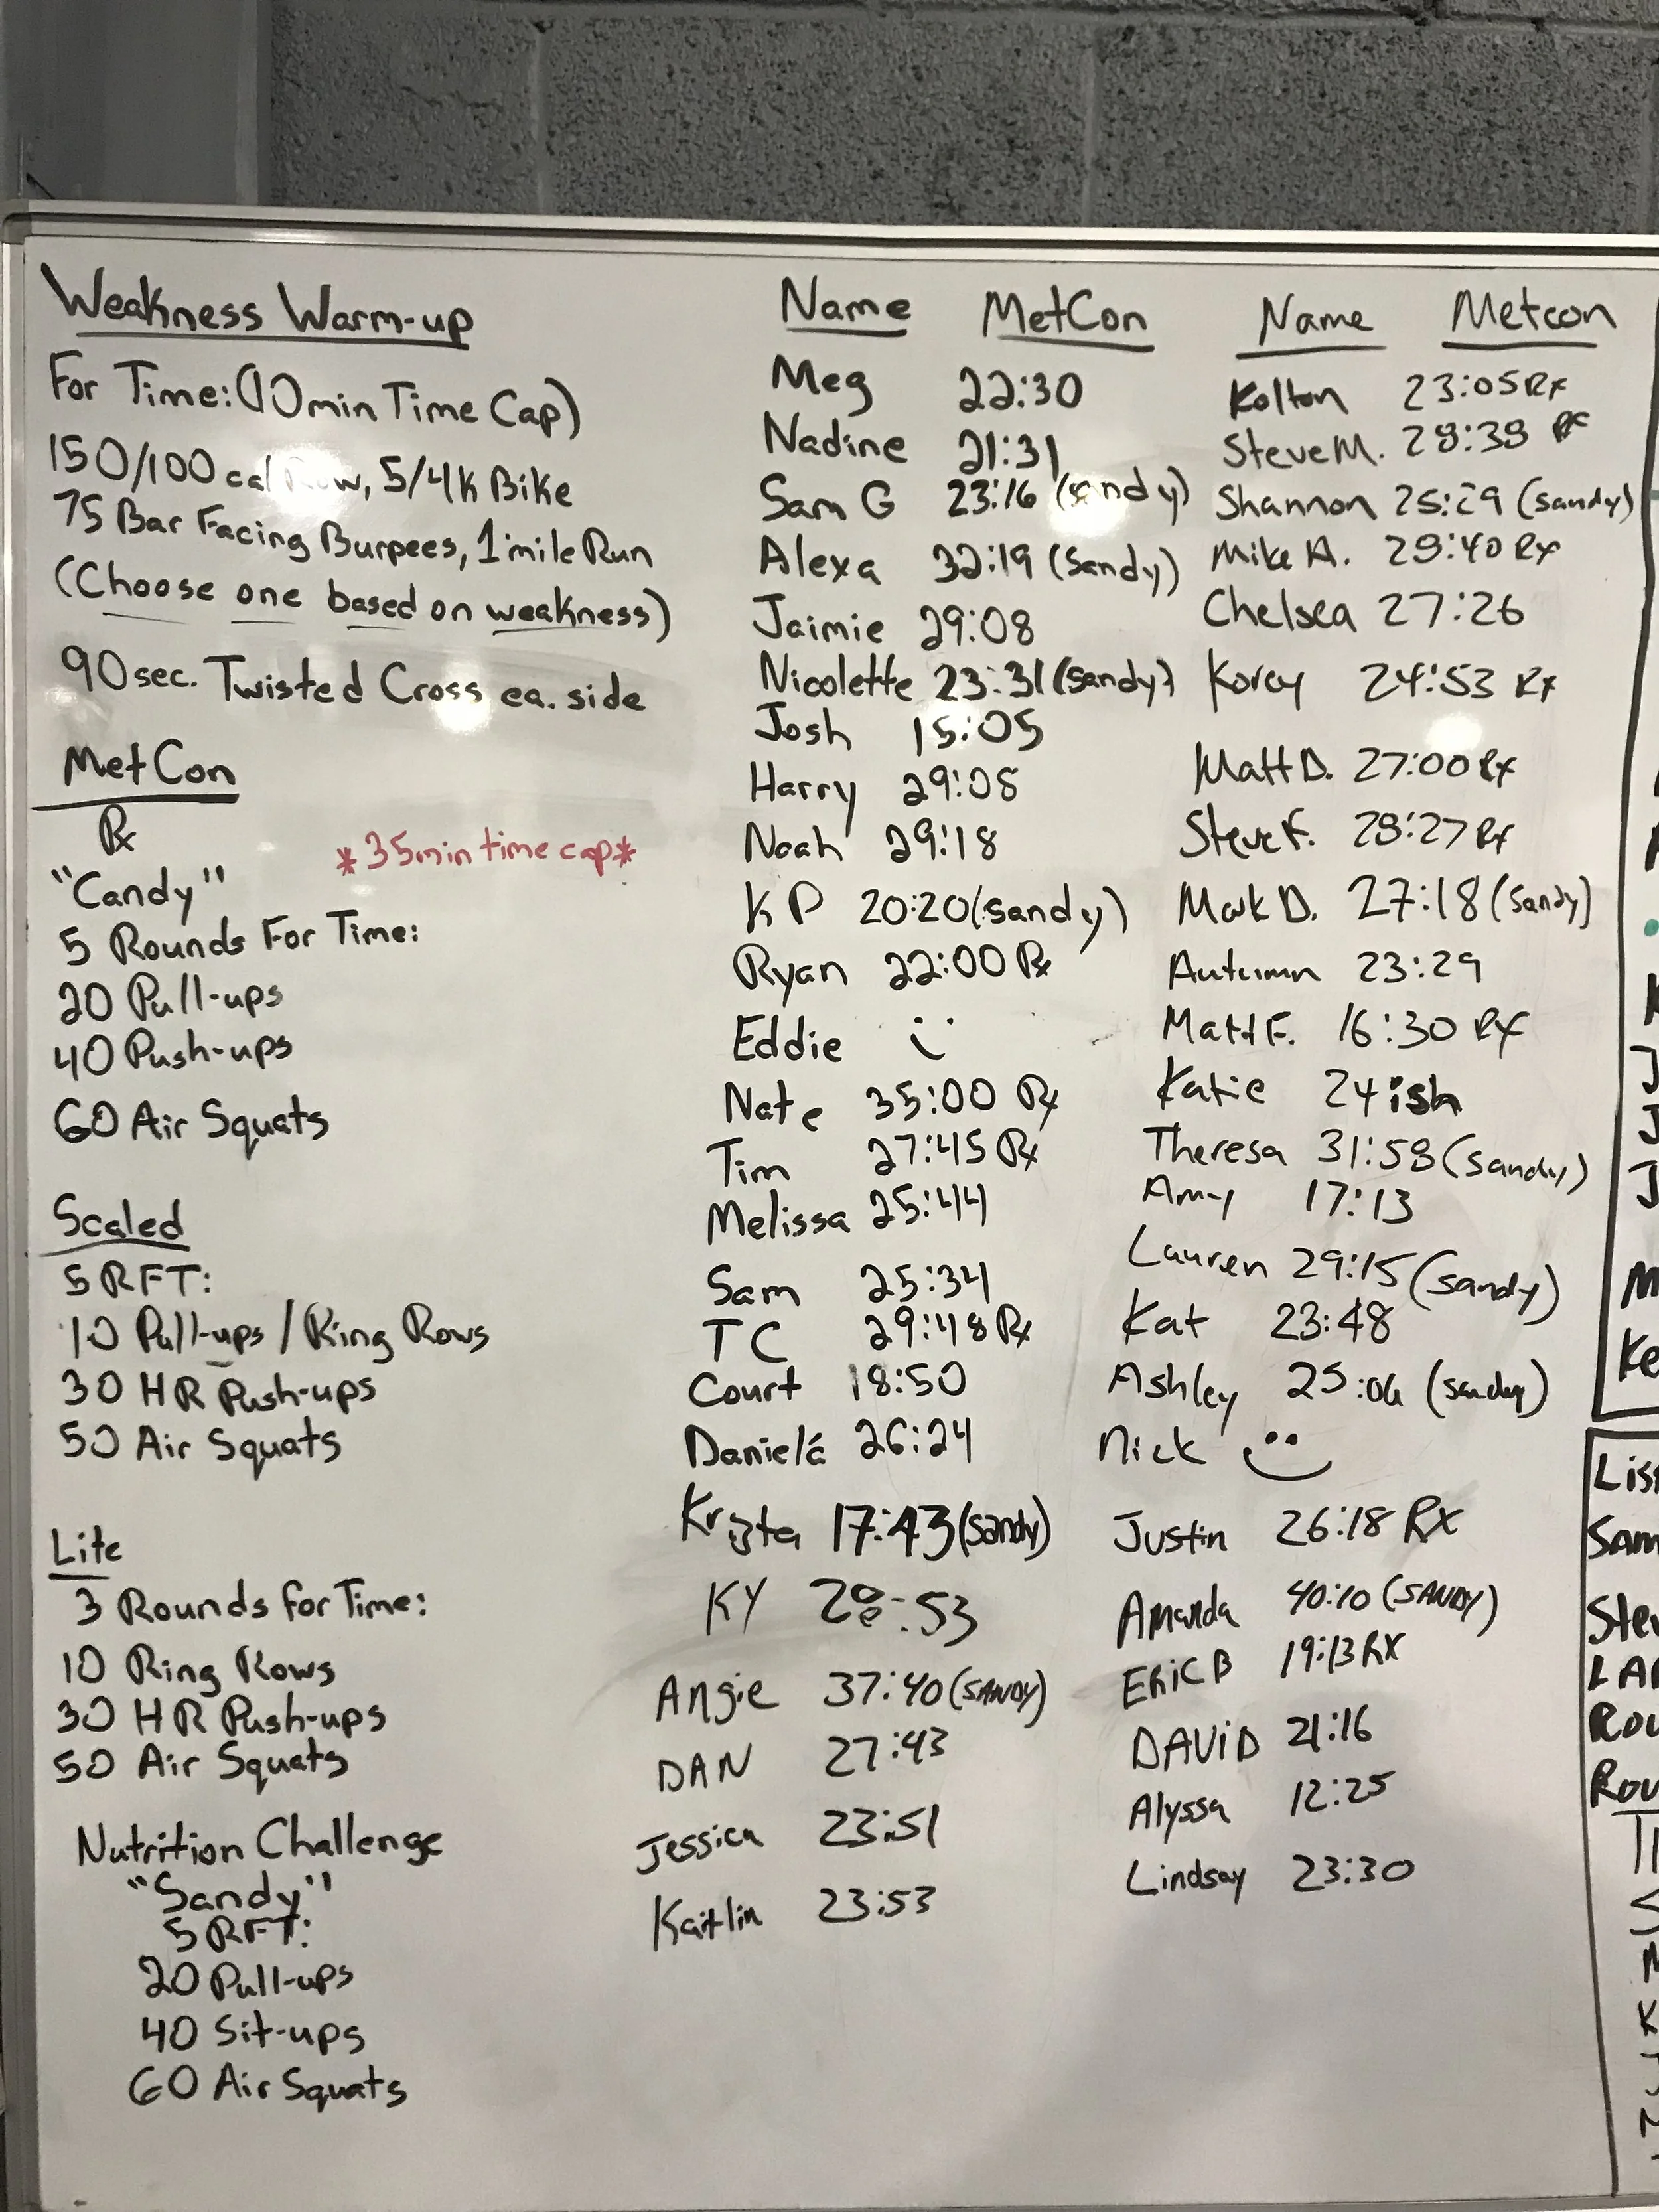 Weakness Warm-up
For Time: (10 min Time Cap)
150/100 cal Row, 5/4K Bike
75 Bar Facing Burpees, 1 mile Run
(Choose one based on weakness)
90 sec. Twisted Cross ea. side
MetCon
Rx
*35 min time cap*
"Candy"
5 Rounds For Time:
20 Pull-ups
40 Push-ups
60 Air Squats
Scaled
5 RFT:
10 Pull-ups / Ring Rows
30 HR Push-ups
50 Air Squats
Lite
3 Rounds for Time:
10 Ring Rows
30 HR Push-ups
50 Air Squats
Nutrition Challenge
"Sandy"
5 RFT:
20 Pull-ups
40 Sit-ups
60 Air Squats
Name MetCon
Meg 22:30
Nadine 21:31
Sam G 23:16 (sandy)
Alexa 32:19 (Sandy)
Jaimie 29:08
Nicolette 23:31 (sandy)
Josh 15:05
Harry 29:08
Noah 29:18
KP 20:20 (sandy)
Ryan 22:00 Rx
Eddie
Nate 35:00 Rx
Tim 27:45 Rx
Melissa 25:44
Sam 25:34
TC 29:48 Rx
Court 18:50
Danielá 26:24
Krista 17:43 (sandy)
KY 28:53
Angie 37:40 (SANDY)
DAN 27:43
Jessica 23:51
Kaitlin 23:53
Name Metcon
Kolton 23:05 Rx
Steve M. 28:38 Rx
Shannon 25:29 (sandy)
Mike A. 28:40 Rx
Chelsea 27:26
Korey 24:53 Rx
Matt D. 27:00 Rx
Steve F. 28:27 Rx
Mark D. 27:18 (Sandy)
Autumn 23:29
Matt F. 16:30 RX
Katie 24ish
Theresa 31:58 (sandy)
Amy 17:13
Lauren 29:15 (sandy)
Kat 23:48
Ashley (sandy)
Nick
Justin 26:18 RX
Amanda 40:10 (SANDY)
ERiC B 19:13 RX
DAViD 21:16
Alyssa 12:25
Lindsay 23:30